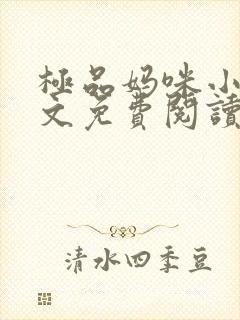 極品妈咪小
文免費閱讀
清水四季豆